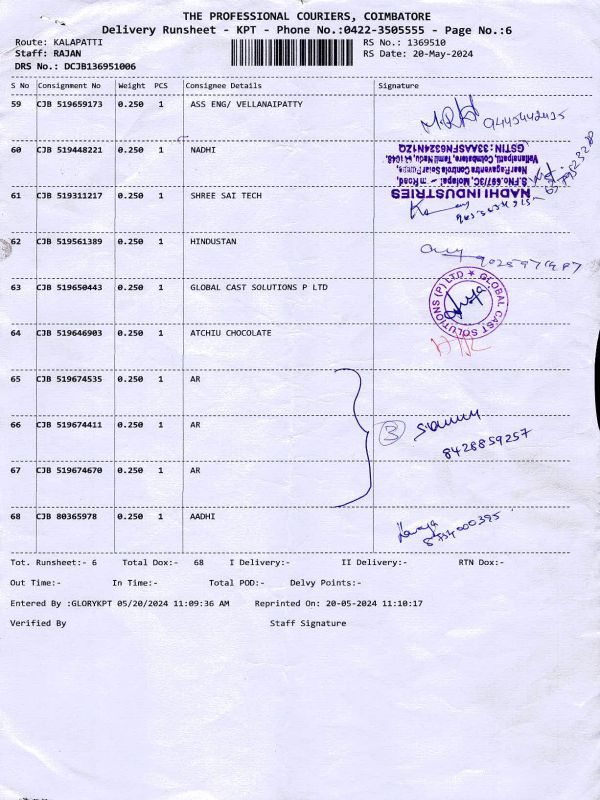 THE PROFESSIONAL COURIERS, COIMBATORE
Delivery Runsheet - KPT - Phone No.:0422-3505555 - Page No.:6
Route: KALAPATTI RS No.: 1369510
Staff: RAJAN RS Date: 20-May-2024
DRS No.: DCJB136951006
S No Consignment No Weight PCS Consignee Details Signature
59 CJB 519659173 0.250 1 ASS ENG/ VELLANAIPATTY
60 CJB 519448221 0.250 1 NADHI
NADHI INDUSTRIES
S.FNo.69/3C, Molapal
Near Ragavendra Controls
Vellanaipatti, Coimbatore, Tamil Nadu
GSTIN: 33AASFN6324N1ZQ
61 CJB 519311217 0.250 1 SHREE SAI TECH
62 CJB 519561389 0.250 1 HINDUSTAN
63 CJB 519650443 0.250 1 GLOBAL CAST SOLUTIONS P LTD
GLOBAL CAST SOLUTIONS (P) LTD
64 CJB 519646903 0.250 1 ATCHIU CHOCOLATE
65 CJB 519674535 0.250 1 AR
66 CJB 519674411 0.250 1 AR 3
8428859257
67 CJB 519674670 0.250 1 AR
68 CJB 80365978 0.250 1 AADHI
Tot. Runsheet:- 6 Total Dox:- 68 I Delivery:- II Delivery:- RTN Dox:-
Out Time:- In Time:- Total POD:- Delvy Points:-
Entered By :GLORYKPT 05/20/2024 11:09:36 AM Reprinted On: 20-05-2024 11:10:17
Verified By Staff Signature